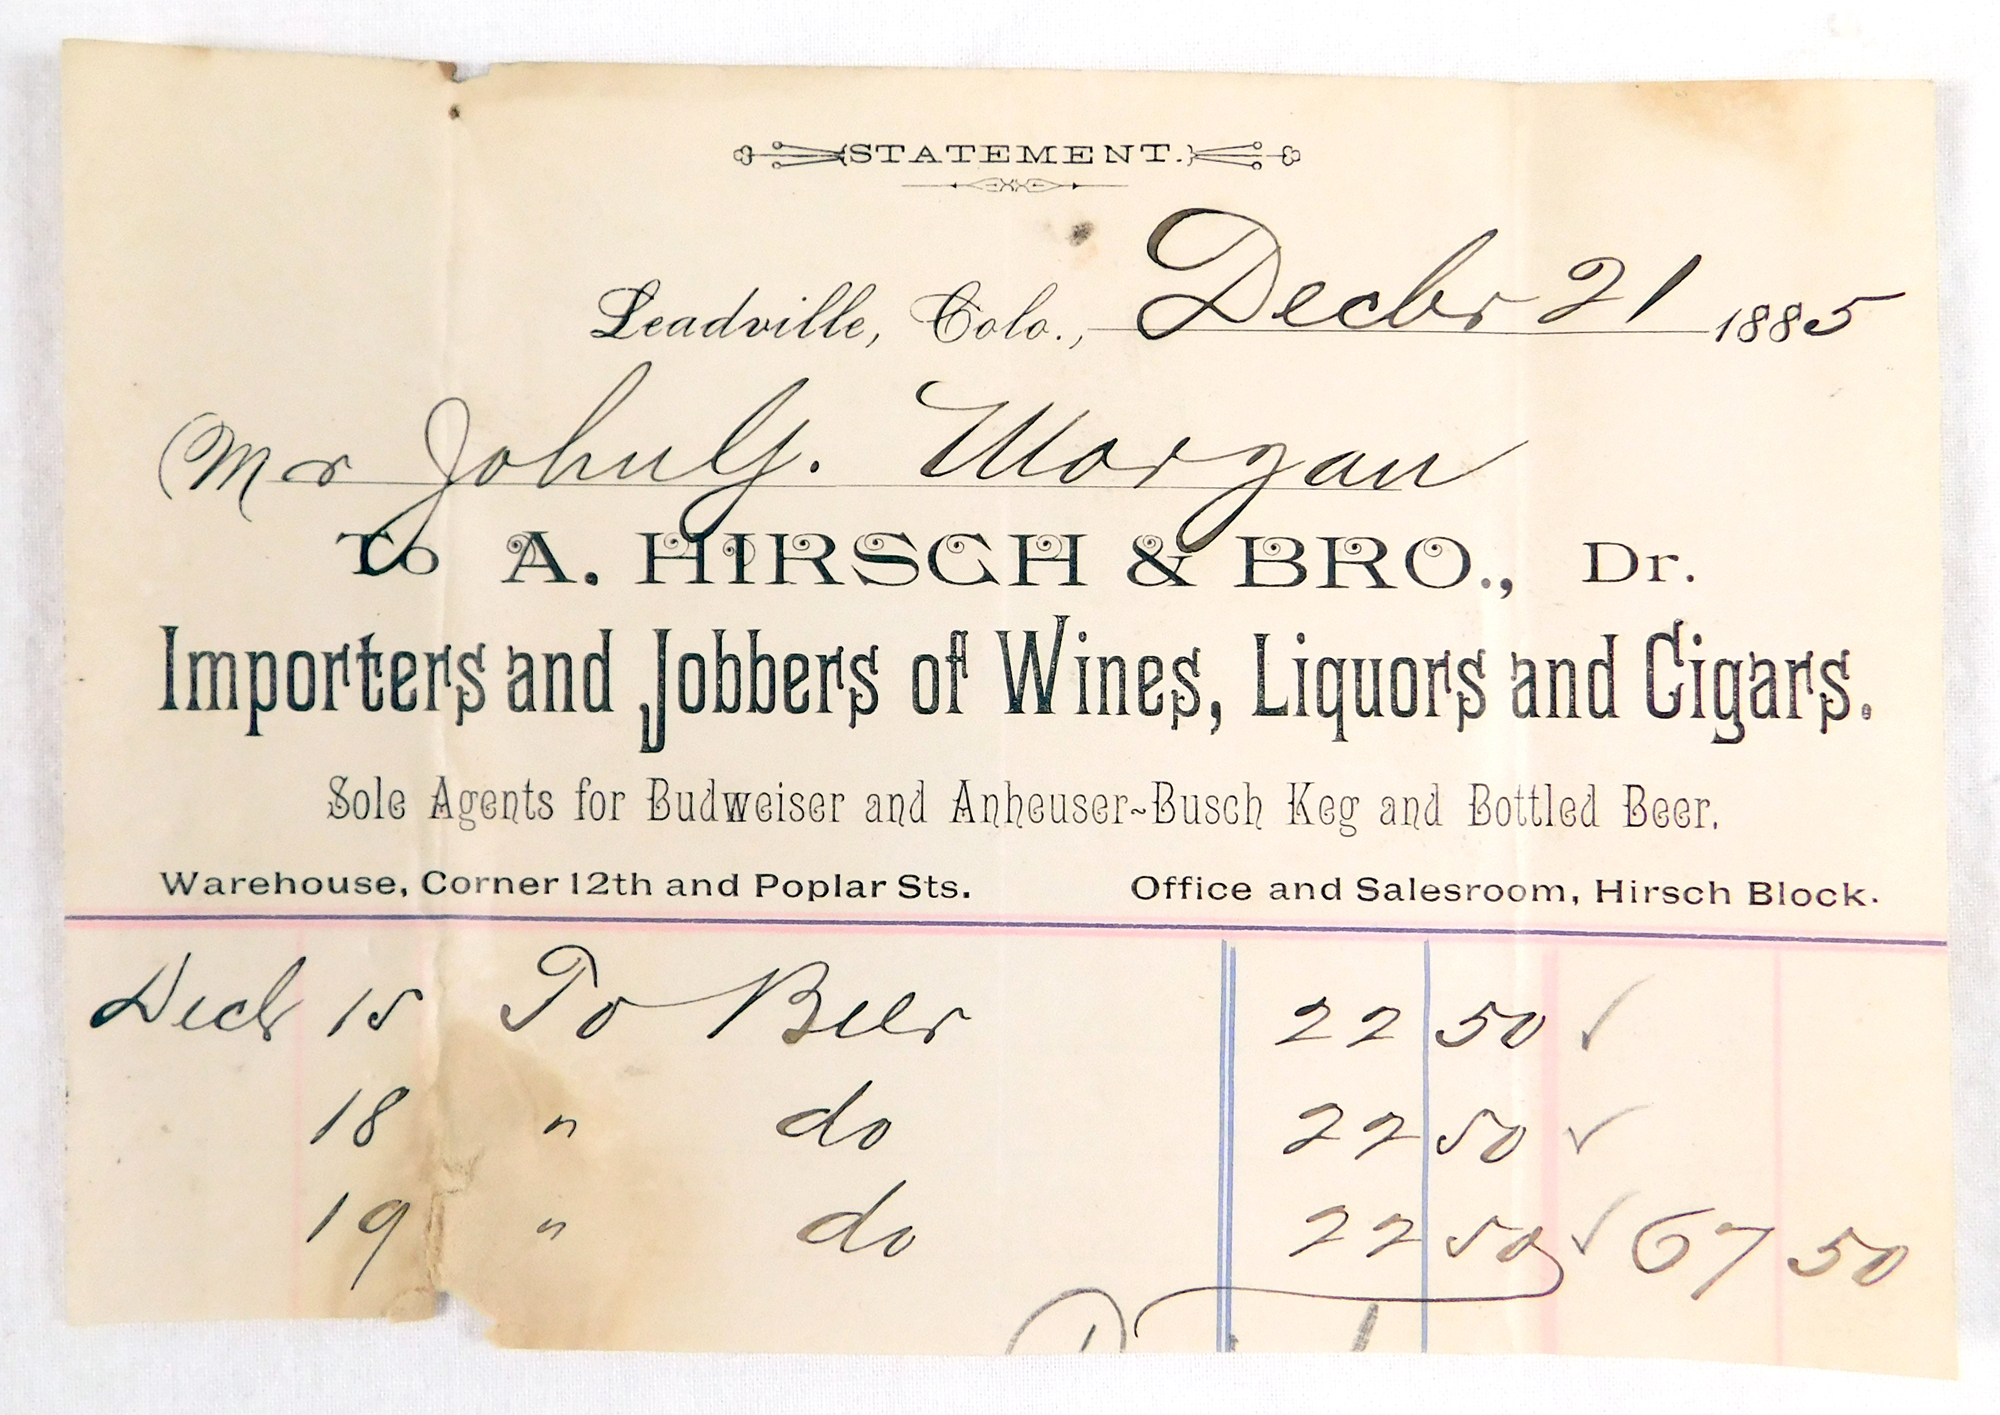 STATEMENT.
Leadville, Colo., Decbr 21 1885
Mr John G. Morgan
To A. HIRSCH & BRO., Dr.
Importers and Jobbers of Wines, Liquors and Cigars.
Sole Agents for Budweiser and Anheuser-Busch Keg and Bottled Beer.
Warehouse, Corner 12th and Poplar Sts. Office and Salesroom, Hirsch Block.
Decbr 15 To Beer 22 50 ✓
18 " do 22 50 ✓
19 " do 22 50 ✓ 67 50